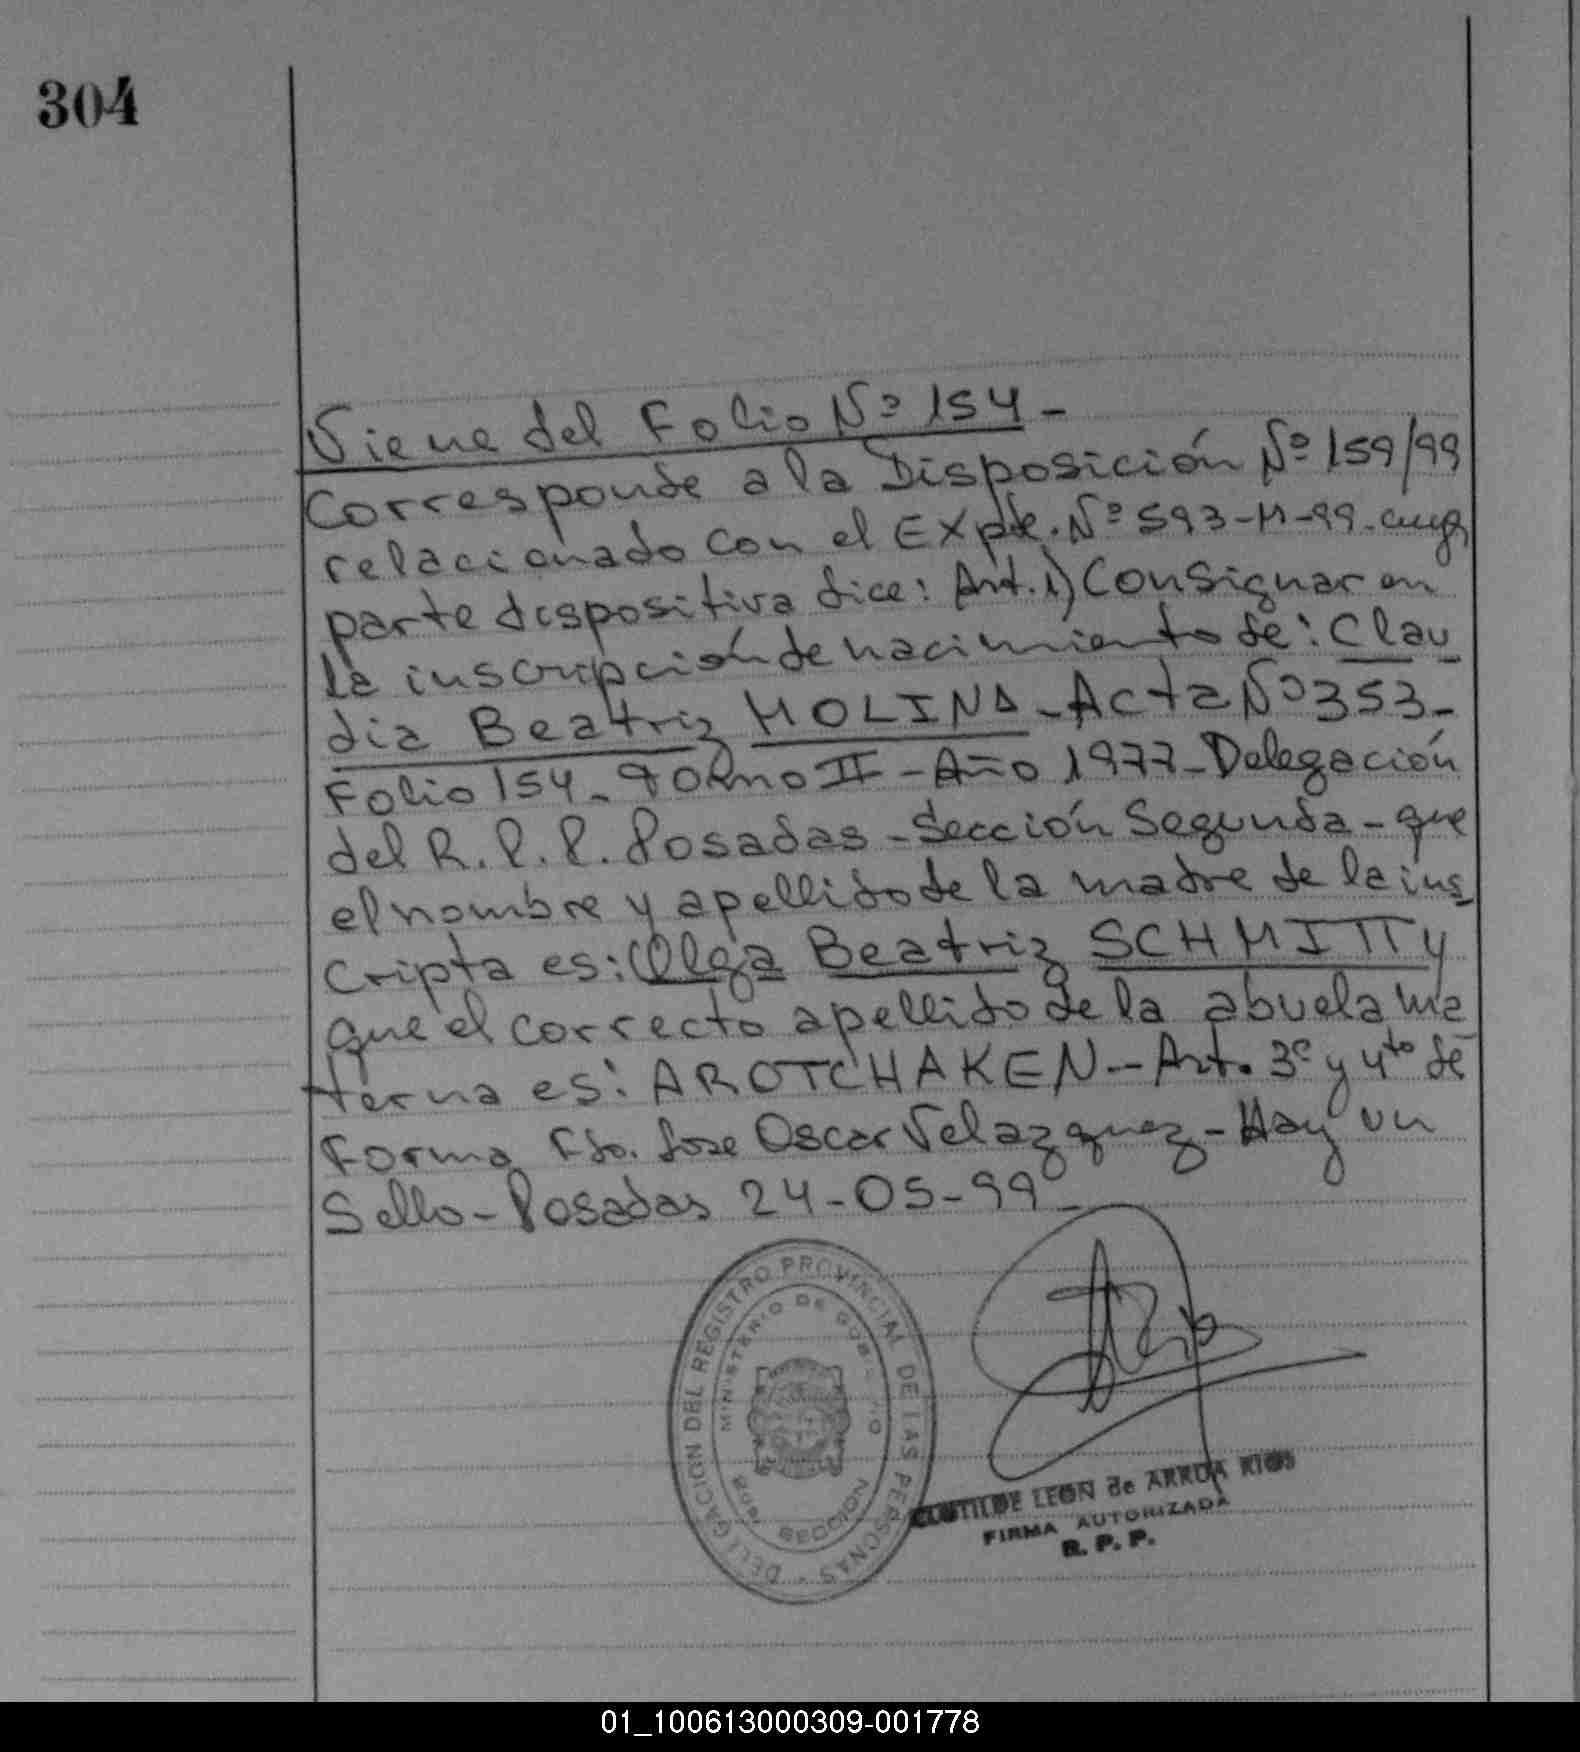 304
Viene del Folio Nº 154-
Corresponde a la Disposición Nº 159/99
relacionado con el Expte. Nº 593-M-99- cuya
parte dispositiva dice: Art. 1) Consignar en
la inscripción de nacimiento de: Clau
dia Beatriz MOLINA - Acta Nº 353-
Folio 154 - Tomo II - Año 1977 - Delegación
del R.P.P. Posadas - Sección Segunda - que
el nombre y apellido de la madre de la ins
cripta es: Olga Beatriz SCHMITT y
que el correcto apellido de la abuela ma
terna es: AROTCHAKEN -- Art. 3º y 4to de
Forma Fdo. Jose Oscar Velazquez - Hay un
Sello - Posadas 24-05-99-
DELEGACION DEL REGISTRO PROVINCIAL DE LAS PERSONAS
MINISTERIO DE GOBIERNO
SECCION
CLOTILDE LEON de ARRUA RIOS
FIRMA AUTORIZADA
R. P. P.
01_100613000309-001778